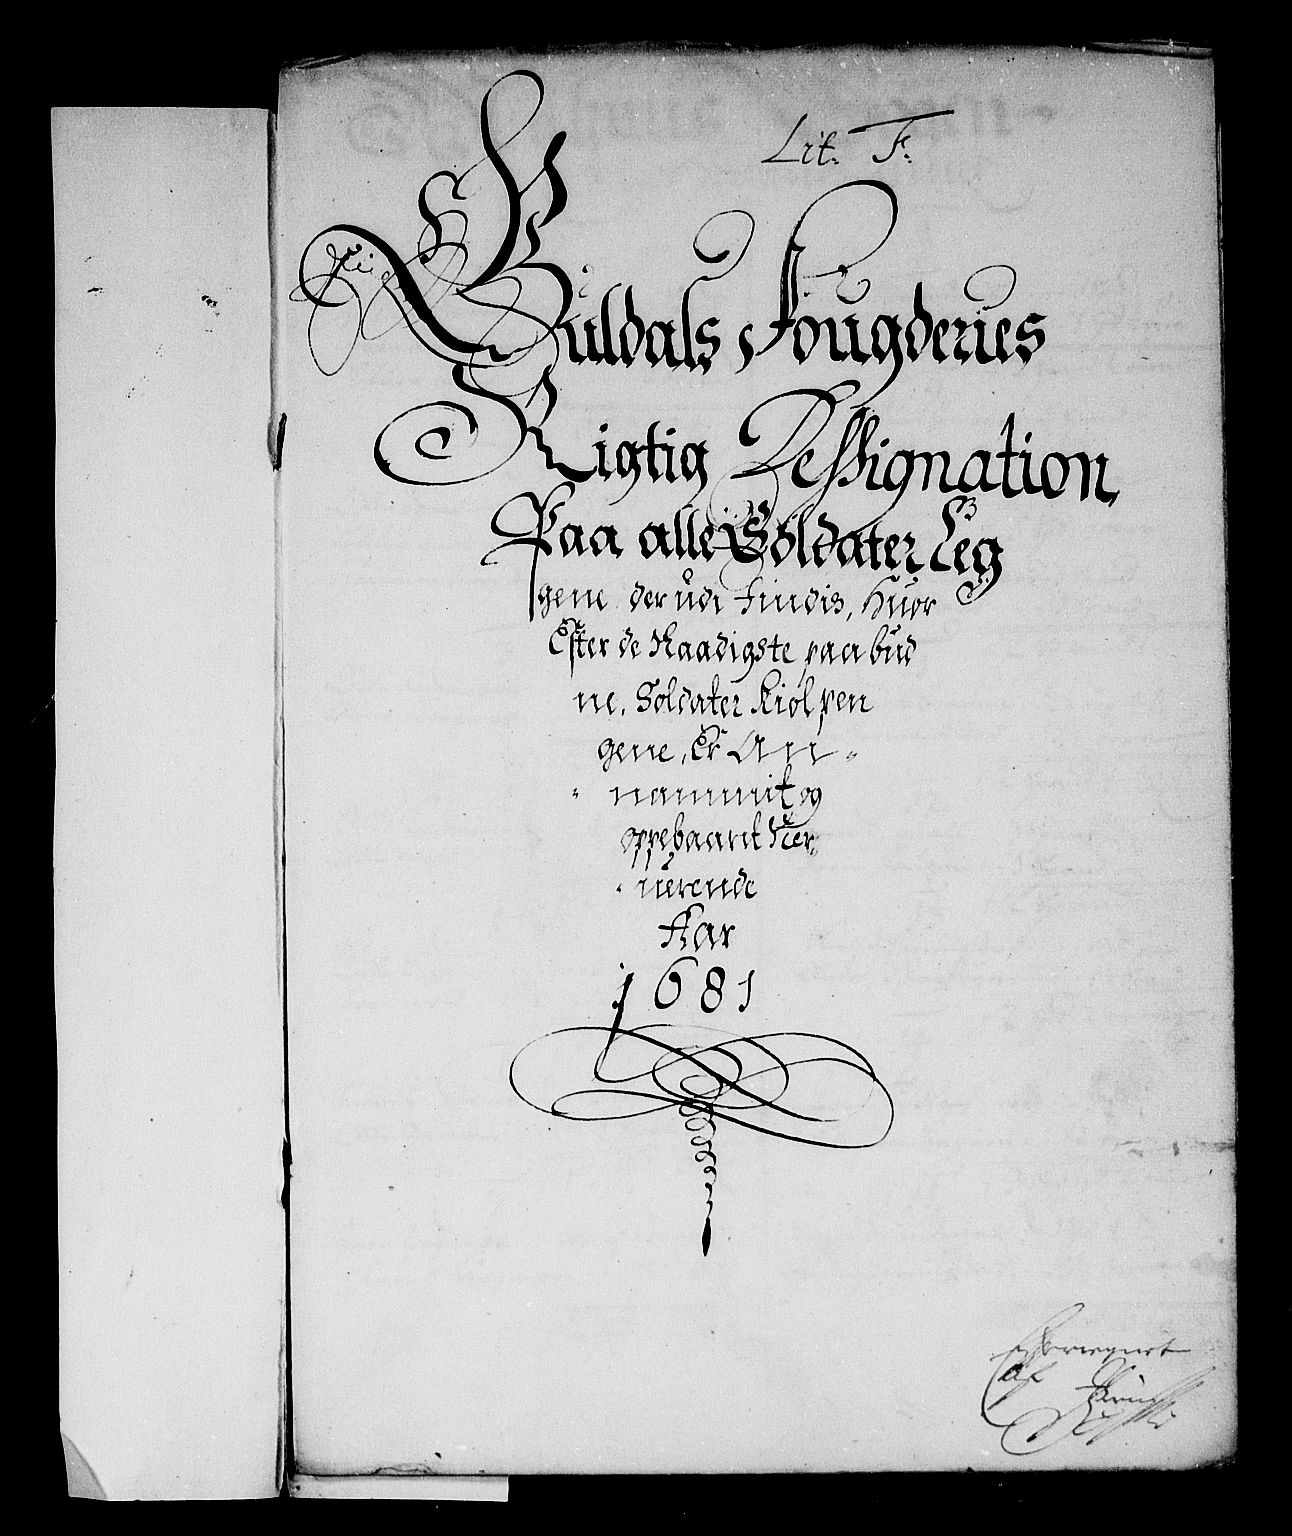 Lit. F.
Guldals Fougderies
Rigtig Dessignation,
Paa alle Soldater Leg
gene der udi findis, Huor
Efter de Naadigste paabud
ne, Soldater Kiolpen
gene, Er An-
- nammit og
oppebaarit Nær
- uerende
Aar
1681
af